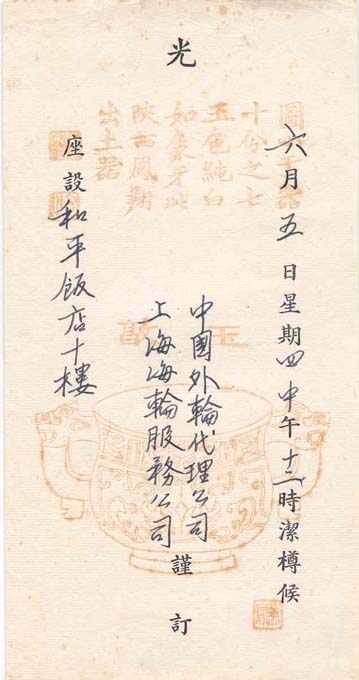 六月五日星期四中午十二時潔樽候
光
中國外輪代理公司
上海海輪服務公司
謹訂
座設和平飯店十樓
玉敦
圖
十分之七
玉色純白
如象牙此
陝西鳳翔
出土器